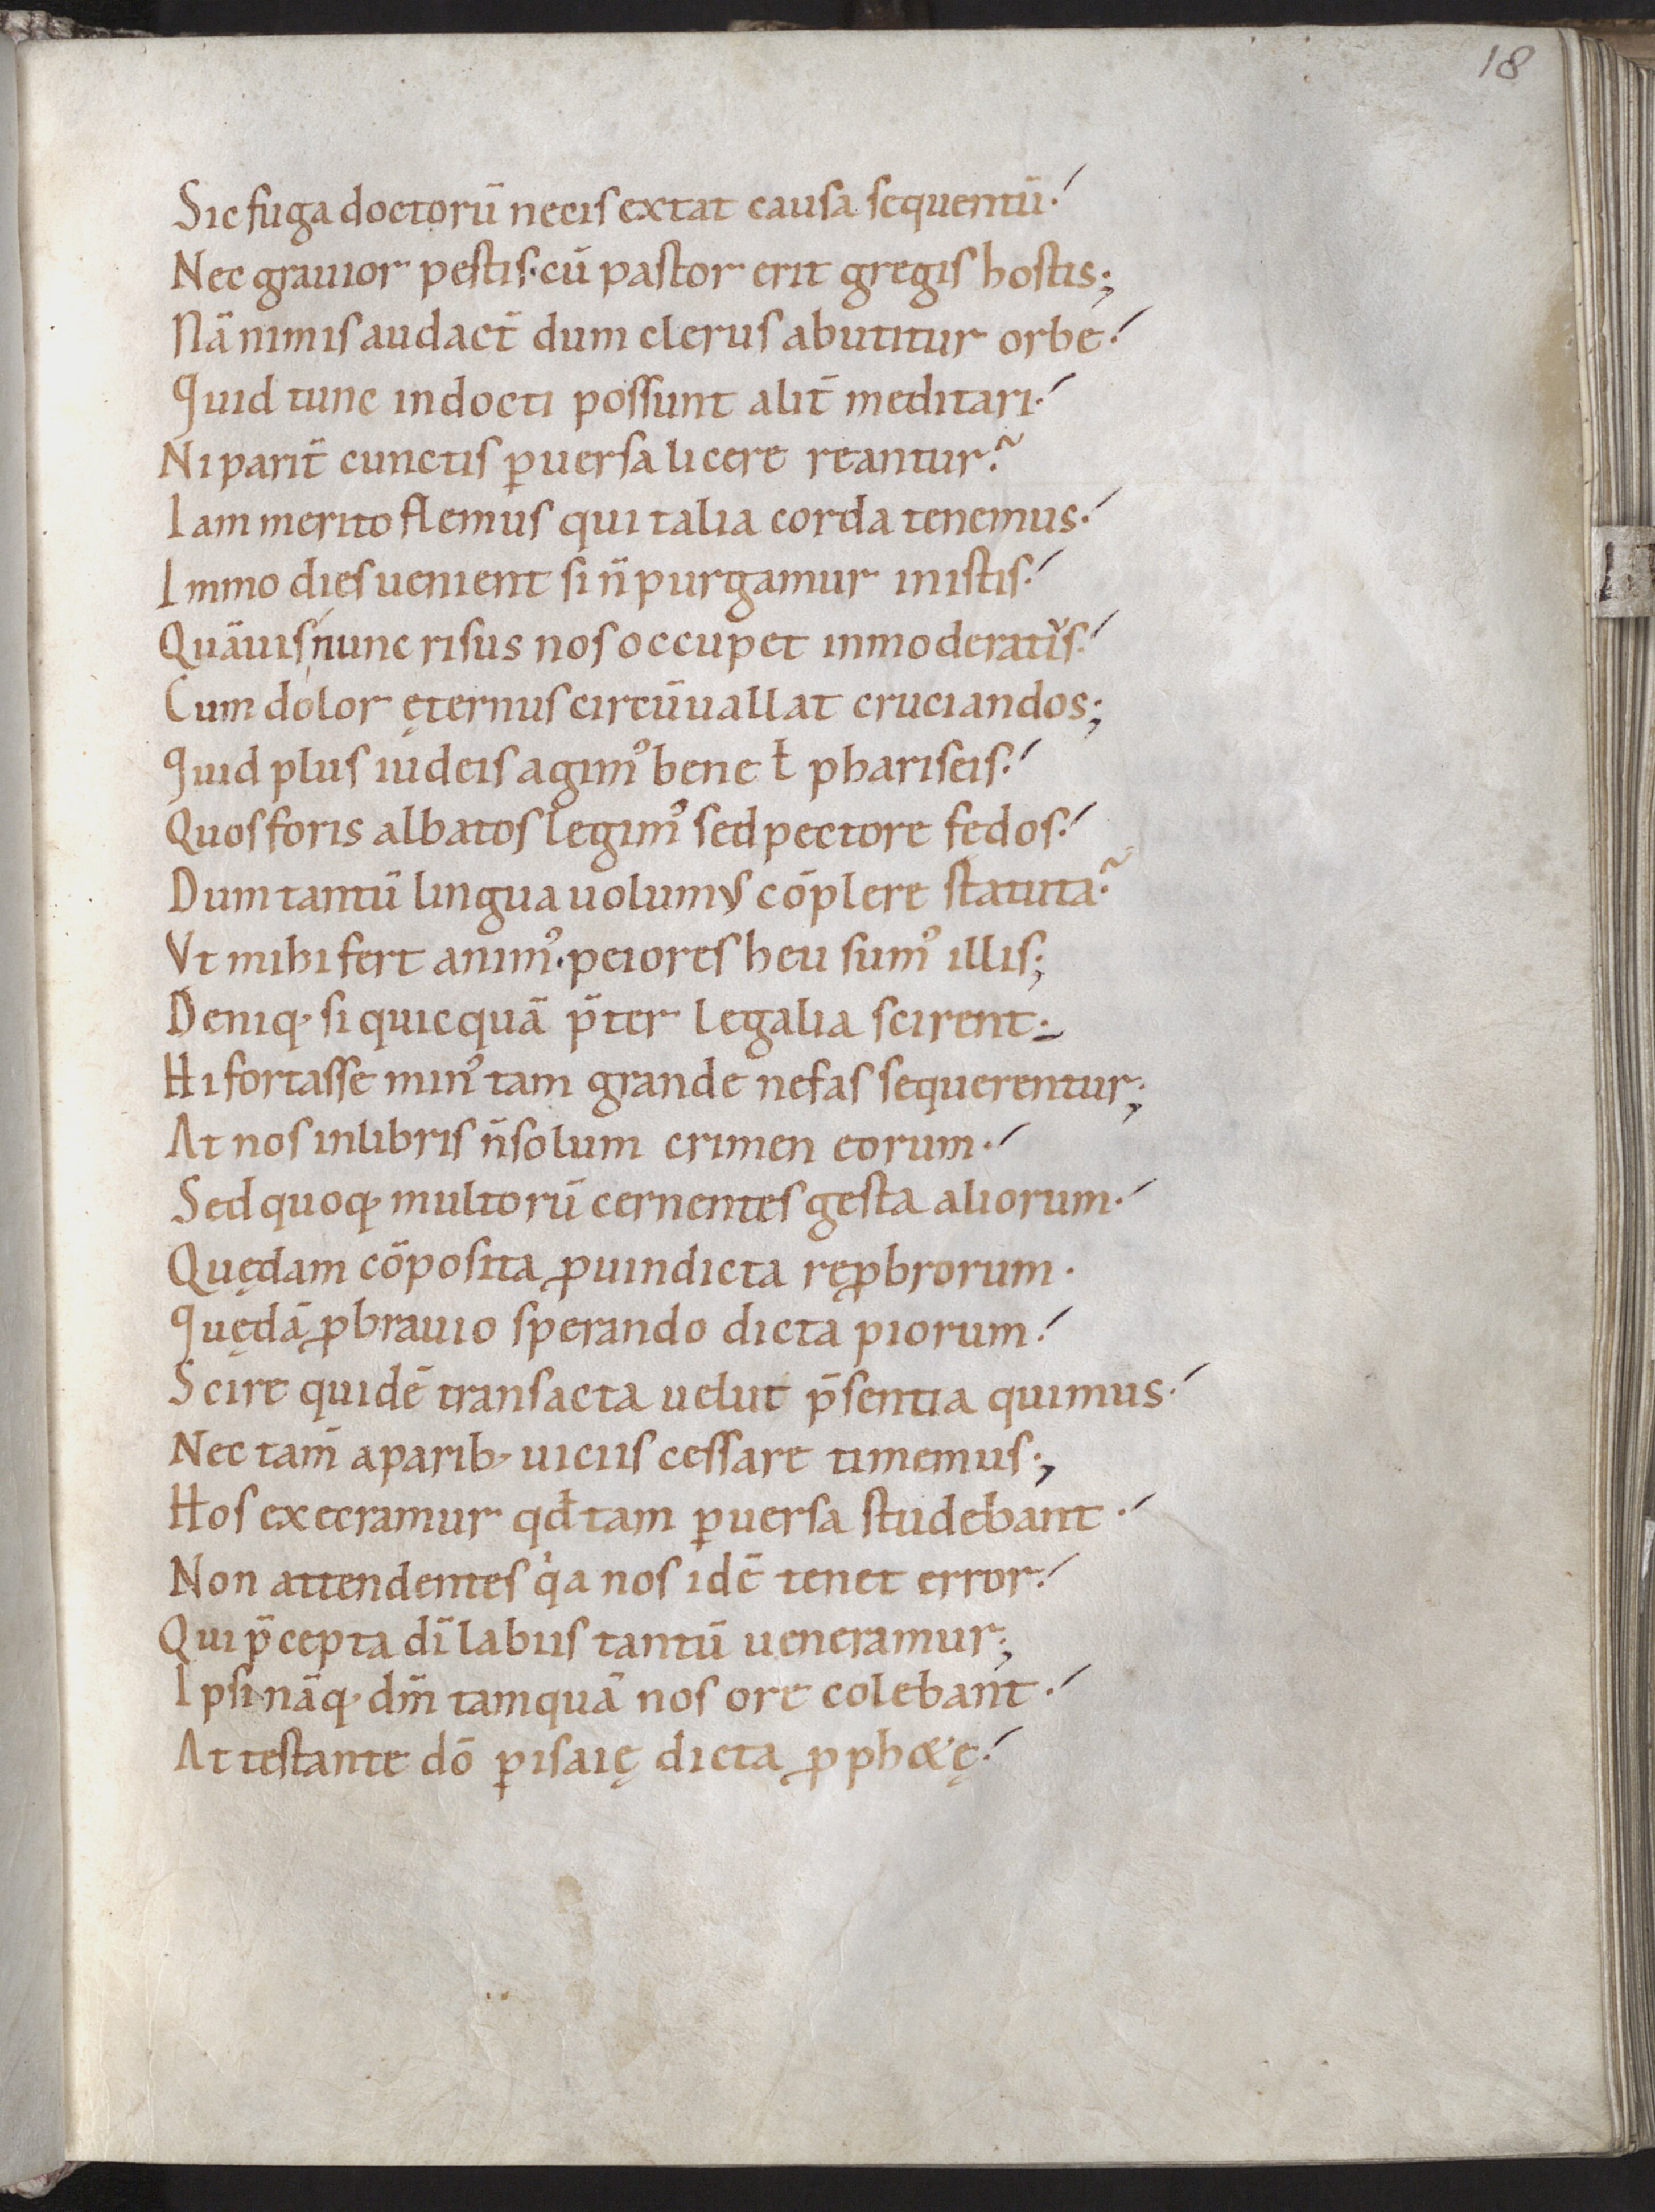 18
Sic fuga doctorū necis extat causa sequentū·/
Nec grauior pestis·cū pastor erit gregis hostis;
Nā nimis audact̄ dum clerus abutitur orbe·/
Quid tunc indocti possunt alit̄ meditari·/
Ni parit̄ cunctis ꝑuersa licere reantur·~
Iam merito flemus qui talia corda tenemus·/
Immo dies uenient si n̄ purgamur in istis·/
Quāuis nunc risus nos occupet inmoderatus·/
Cum dolor ęternus circūuallat cruciandos;
Quid plus iudeis agim᾽ bene ł phariseis·/
Quos foris albatos legim᾽ sed pectore fedos·/
Dum tantū lingua uolumus cōplere statuta·~
Vt mihi fert anim᾽·peiores heu sum᾽ illis;
Deniq· si quicquā p̄ter legalia scirent·
Hi fortasse min᾽ tam grande nefas sequerentur;
At nos in libris n̄ solum crimen eorum·/
Sed quoq· multorū cernentes gesta aliorum·/
Quędam cōposita ꝓ uindicta reꝓbrorum·
Quędā ꝓ brauio sperando dicta piorum·/
Scire quidē transacta uelut p̄sentia quimus·/
Nec tam̄ a parib· uiciis cessare timemus;
Hos execramur qđ tam ꝑuersa studebant·/
Non attendentes q̇a nos idē tenet error·/
Qui p̄cepta dī labiis tantū ueneramur;
Ipsi nāq· dm̄ tamquā nos ore colebant·/
Attestante dō ꝑ isaię dicta ꝓphetę·/